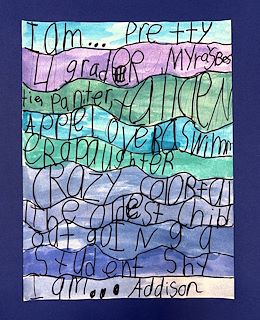 I am... Pretty
4 grader MYra's Bes
tie panter
APPle Lover a swimm
er a Daughter
CRAZY COLORFUL
The oldest child
out goING a
Student Shy
I am... Addison